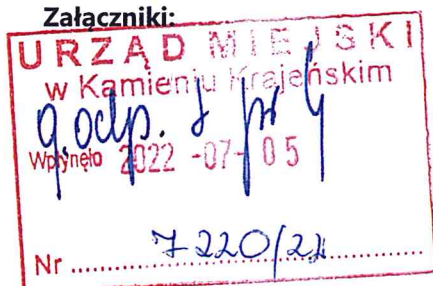 Załączniki:
URZĄD MIEJSKI
w Kamieniu Krajeńskim
Wpłynęło 2022 -07- 05
Nr ........ 7220/22 ........